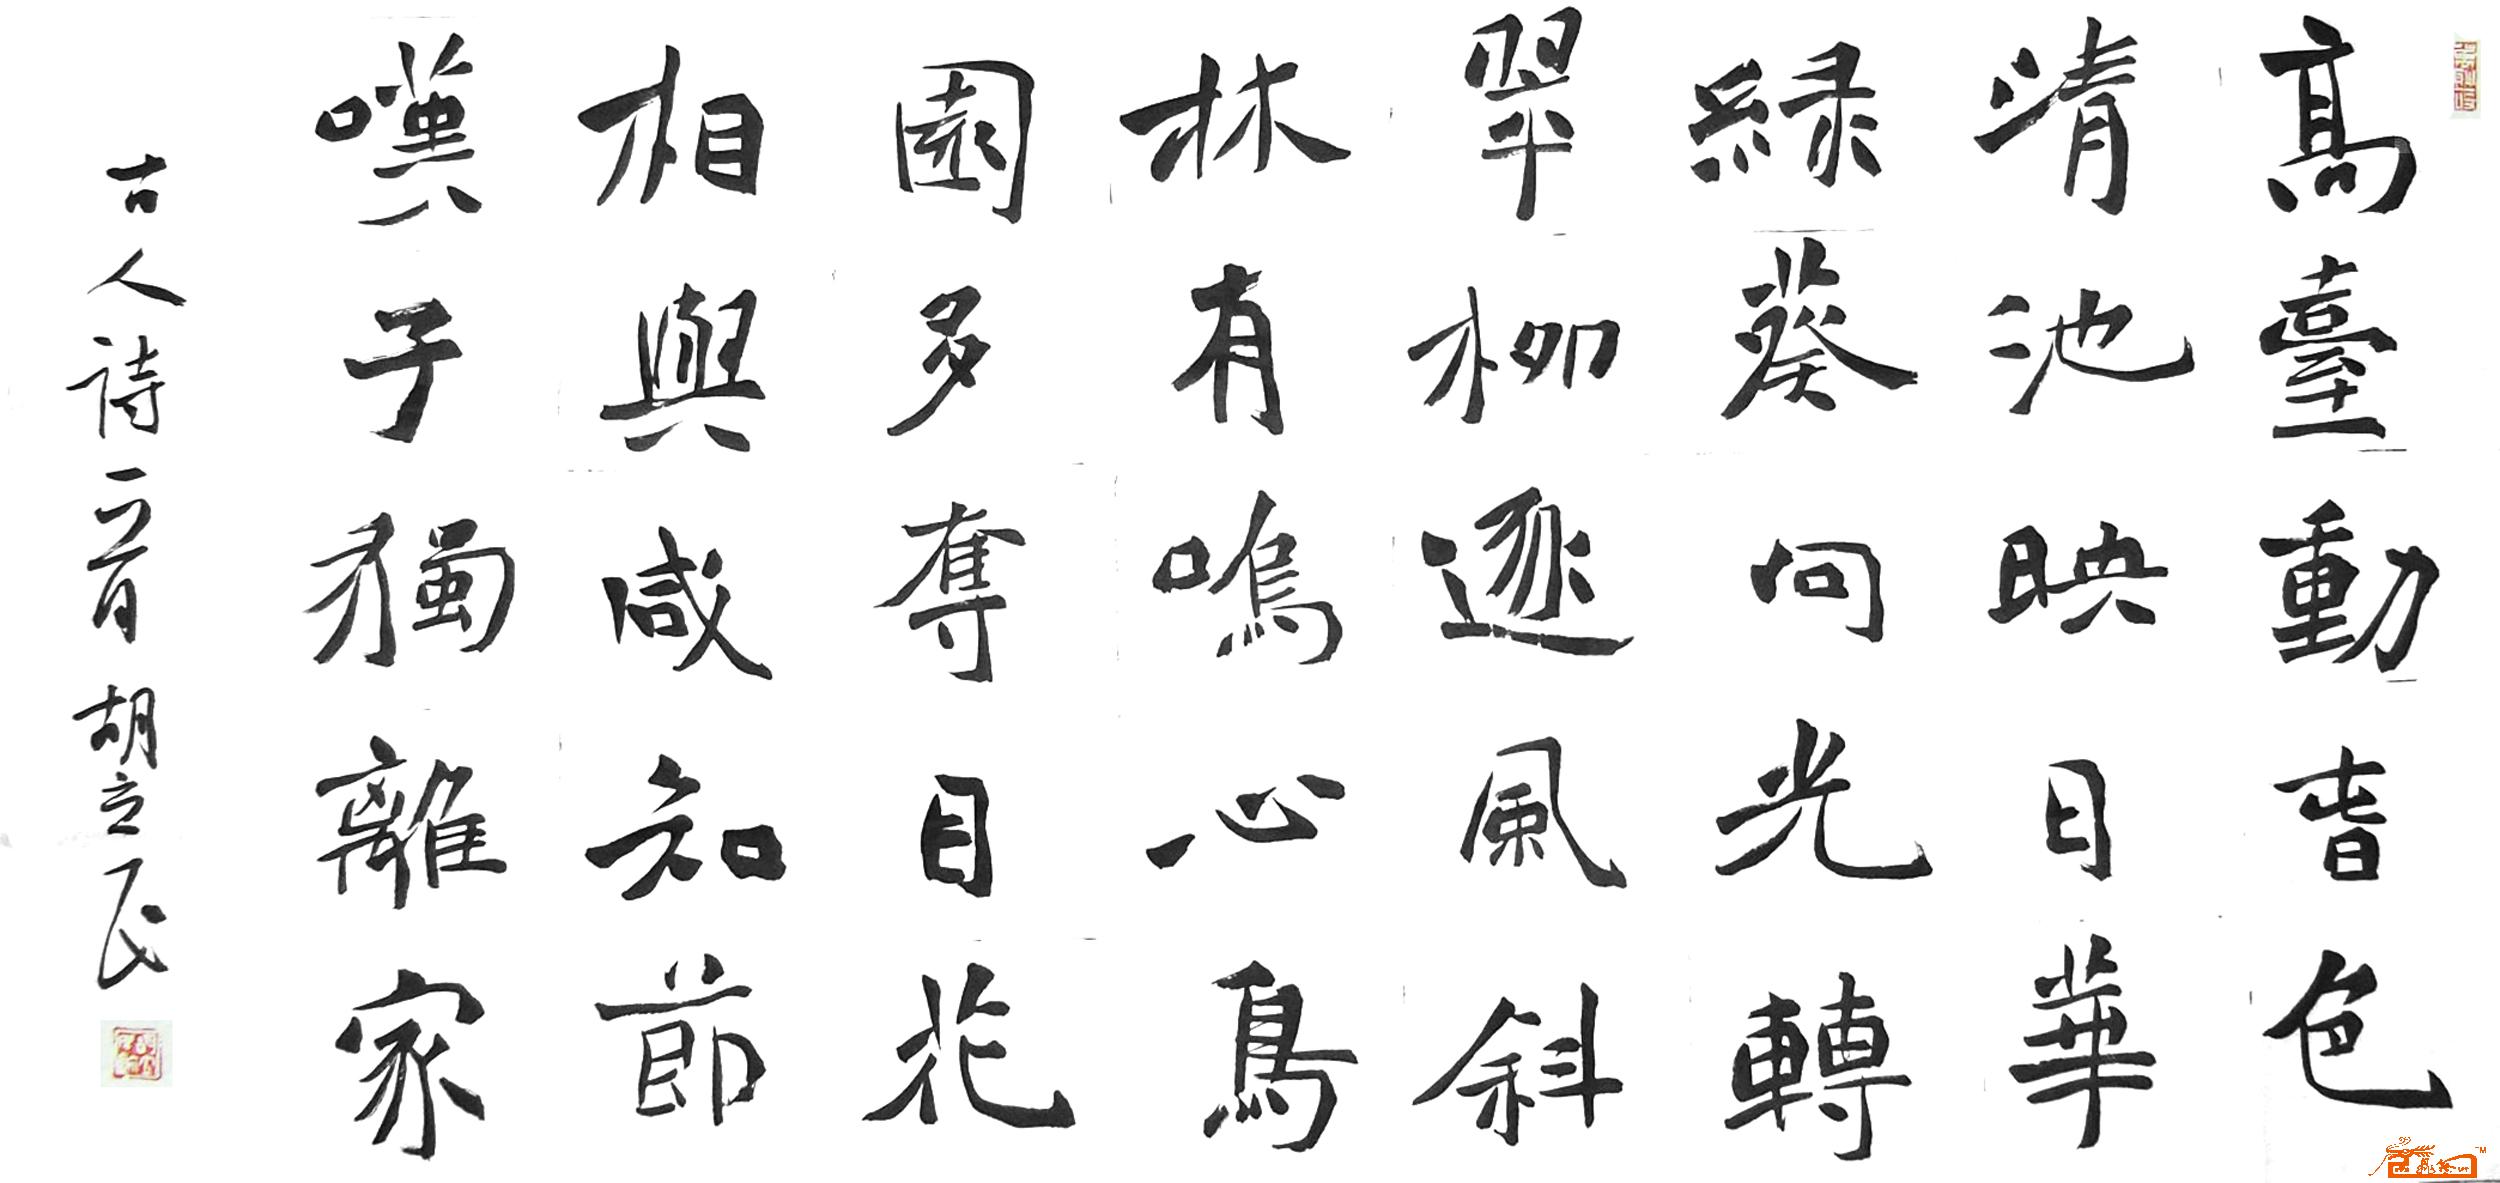 高臺動春色
清池映日華
綠葵向光轉
翠柳逐風斜
林有鳴心鳥
園多奪目花
相與咸知節
嘆子獨離家
古人詩一首 胡立民